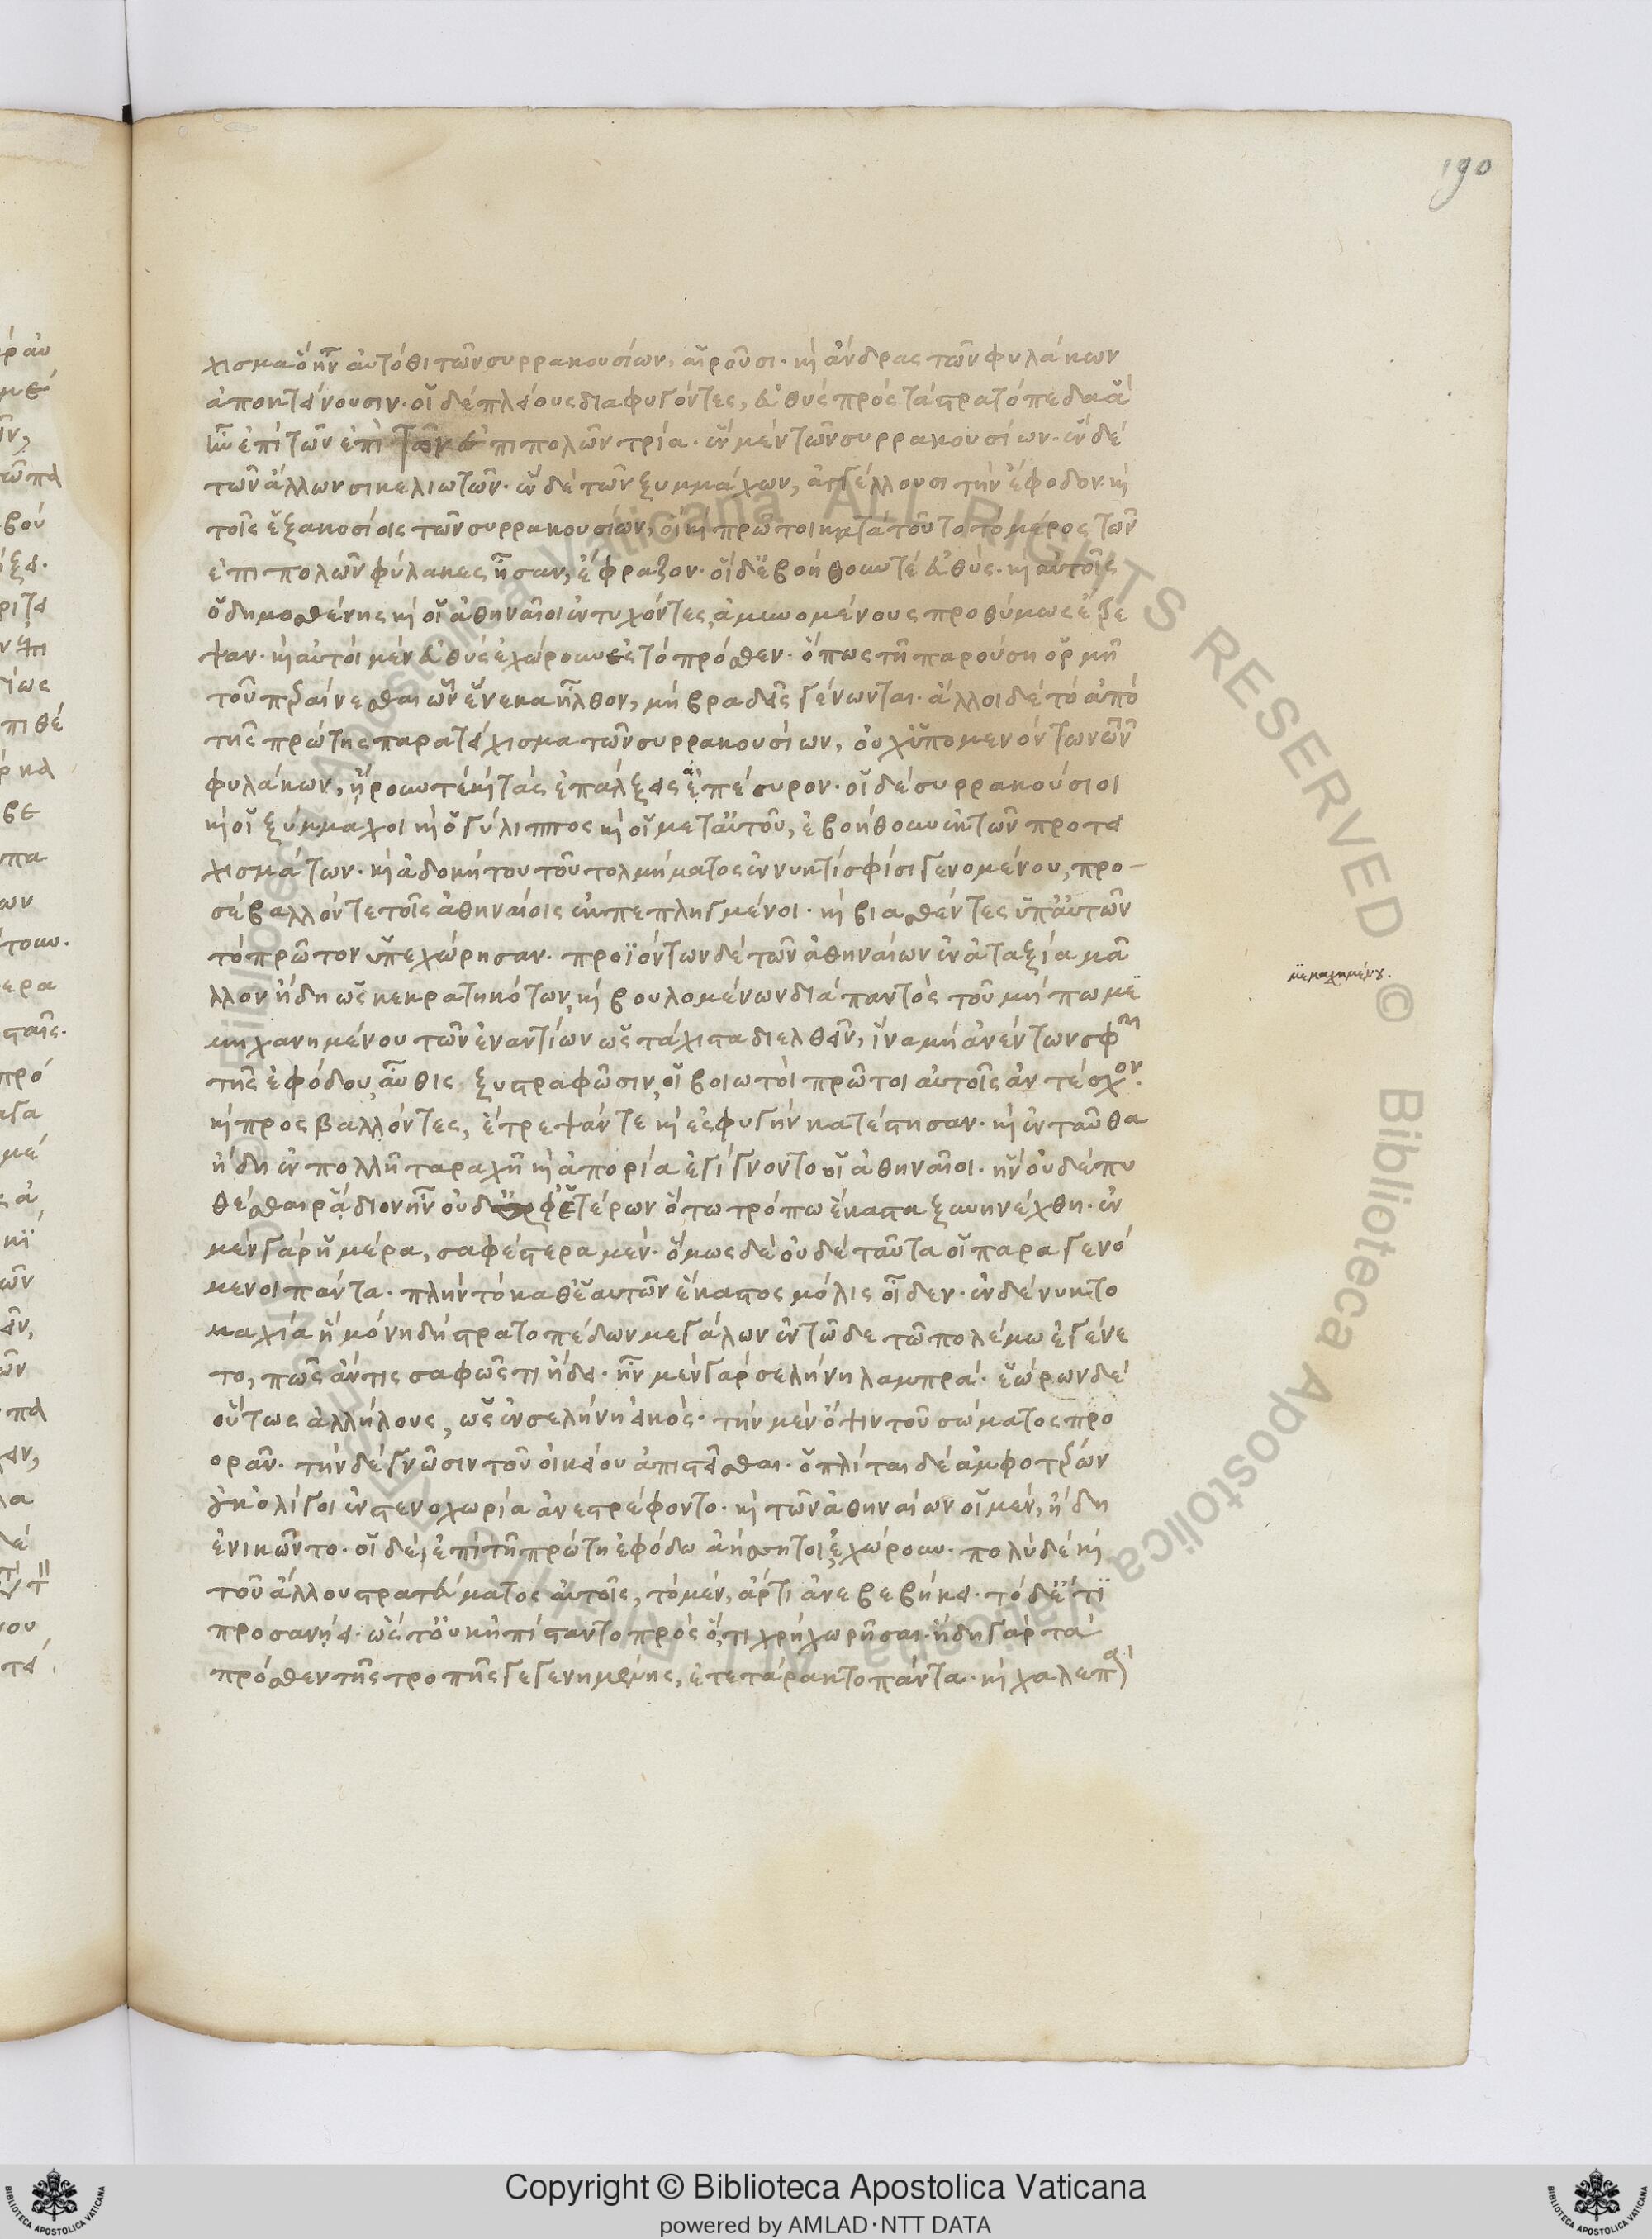 190
χισμα ὃ ἦν αὐτόθι τῶν συρρακουσίων, αἱροῦσι· καὶ ἄνδρας τῶν φυλάκων
ἀποκτείνουσιν· οἱ δὲ πλείους διαφυγόντες, εὐθὺς πρὸς τὰ στρατόπεδα ἃ
ἦν ἐπὶ τῶν ἐπιπολῶν τρία· ἓν μὲν τῶν συρρακουσίων· ἓν δὲ
τῶν ἄλλων σικελιωτῶν· ἓν δὲ τῶν ξυμμάχων, ἀγγέλλουσι τὴν ἔφοδον· καὶ
τοῖς ἑξακοσίοις τῶν συρρακουσίων, οἳ καὶ πρῶτοι κατὰ τοῦτο τὸ μέρος τῶν
ἐπιπολῶν φύλακες ἦσαν, ἔφραζον· οἱ δὲ ἐβοήθουν τε εὐθύς· καὶ αὐτοῖς
ὁ δημοσθένης καὶ οἱ ἀθηναῖοι ἐντυχόντες, ἀμυνομένους προθύμως ἔτρε
ψαν· καὶ αὐτοὶ μὲν εὐθὺς ἐχώρουν ἐς τὸ πρόσθεν· ὅπως τῇ παρούσῃ ὁρμῇ
τοῦ περαίνεσθαι ὧν ἕνεκα ἦλθον, μὴ βραδεῖς γένωνται· ἄλλοι δὲ τὸ ἀπὸ
τῆς πρώτης παρατείχισμα τῶν συρρακουσίων, οὐχ ὑπομενόντων τῶν
φυλάκων, ᾕρουν τε καὶ τὰς ἐπάλξεις ἀπέσυρον· οἱ δὲ συρρακούσιοι
καὶ οἱ ξύμμαχοι καὶ ὁ γύλιππος καὶ οἱ μετ αὐτοῦ, ἐβοήθουν ἐκ τῶν προτει
χισμάτων· καὶ ἀδοκήτου τοῦ τολμήματος ἐν νυκτὶ σφίσι γενομένου, προ-
σέβαλλόν τε τοῖς ἀθηναίοις ἐκπεπληγμένοι· καὶ βιασθέντες ὑπ αὐτῶν
τὸ πρῶτον ὑπεχώρησαν· προϊόντων δὲ τῶν ἀθηναίων ἐν ἀταξία μᾶ
λλον ἤδη ὡς κεκρατηκότων, καὶ βουλομένων διὰ παντὸς τοῦ μήπω με
μηχανημένου τῶν ἐναντίων ὡς τάχιστα διελθεῖν, ἵνα μὴ ἀνέντων σφῶν
τῆς ἐφόδου, αὖθις ξυστραφῶσιν, οἱ βοιωτοὶ πρῶτοι αὐτοῖς ἀντέσχον·
καὶ προσβαλλόντες, ἔτρεψάν τε καὶ ἐς φυγὴν κατέστησαν· καὶ ἐνταῦθα
ἤδη ἐν πολλῇ ταραχῇ καὶ ἀπορία ἐγίγνοντο οἱ ἀθηναῖοι· ἣν οὐδὲ πυ
θέσθαι ῥάδιον ἦν οὐδ ἀφ ἑτέρων ὅτω τρόπω ἕκαστα ξυνηνέχθη· ἐν
μὲν γὰρ ἡμέρα, σαφέστερα μέν· ὅμως δὲ οὐδὲ ταῦτα οἱ παραγενό
μενοι πάντα· πλὴν τὸ καθ ἑαυτὸν ἕκαστος μόλις οἶδεν· ἐν δὲ νυκτο
μαχία ἣ μόνη δὴ στρατοπέδων μεγάλων ἐν τῶδε τῶ πολέμω ἐγένε
το, πῶς ἄν τις σαφῶς τι ἤδει· ἦν μὲν γὰρ σελήνη λαμπρά· ἑώρων δὲ
οὕτως ἀλλήλους, ὡς ἐν σελήνη εἰκός· τὴν μὲν ὄψιν τοῦ σώματος προ
ορᾶν· τὴν δὲ γνῶσιν τοῦ οἰκείου ἀπιστεῖσθαι· ὁπλῖται δὲ ἀμφοτέρων
οὐκ ὀλίγοι ἐν στενοχωρία ἀνεστρέφοντο· καὶ τῶν ἀθηναίων οἱ μὲν, ἤδη
ἐνικῶντο· οἱ δὲ, ἐπὶ τῇ πρώτη ἐφόδω ἀήσσητοι ἐχώρουν· πολὺ δὲ καὶ
τοῦ ἄλλου στρατεύματος αὐτοῖς, τὸ μὲν, ἄρτι ἀνεβεβήκει· τὸ δ ἔτι
προσανῄει· ὥστ οὐκ ἠπίσταντο πρὸς ὅ,τι χρὴ χωρῆσαι· ἤδη γὰρ τὰ
πρόσθεν τῆς τροπῆς γεγενημένης, ἐτετάρακτο πάντα· καὶ χαλεπὰ
Copyright © Biblioteca Apostolica Vaticana
powered by AMLAD·NTT DATA